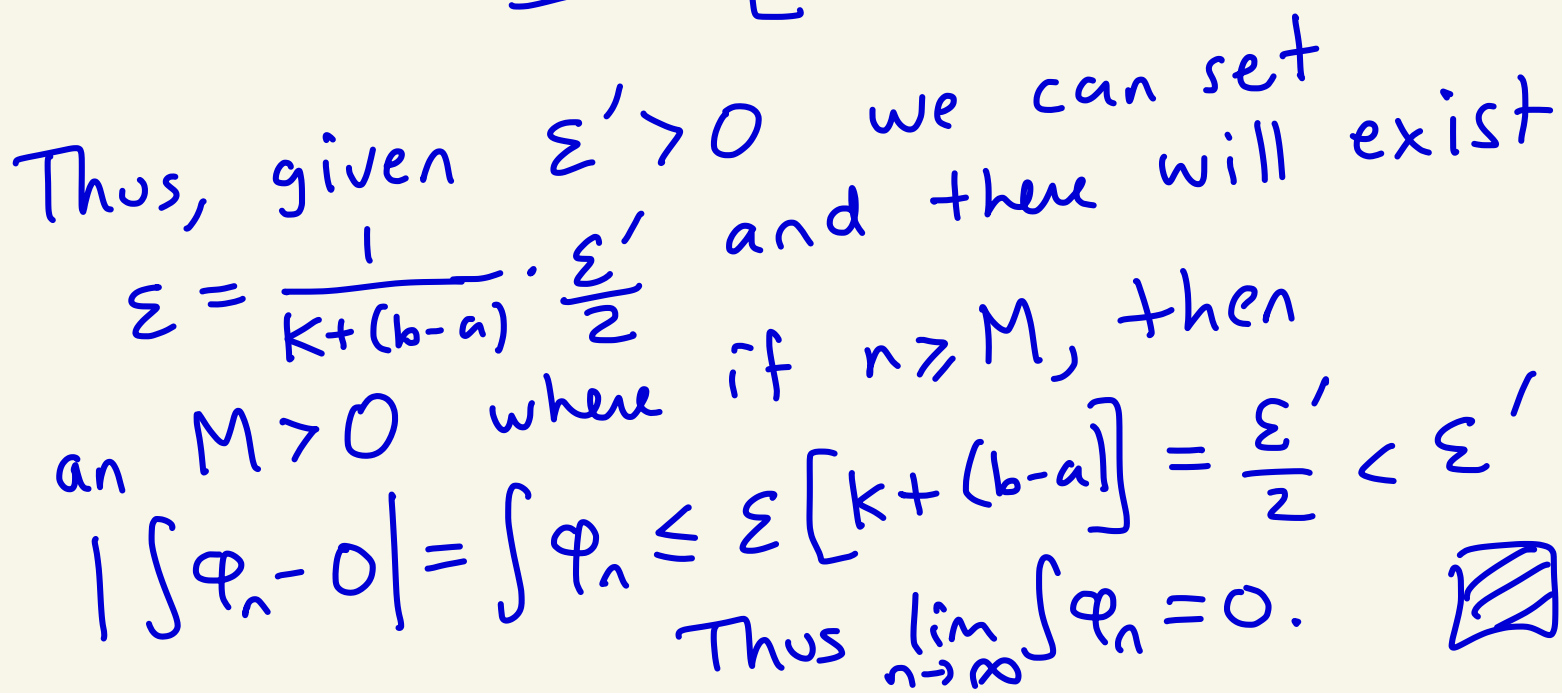 Thus, given ε' > 0 we can set
ε = 1/(K+(b-a)) · ε'/2 and there will exist
an M > 0 where if n ≥ M, then
|∫φₙ - 0| = ∫φₙ ≤ ε[K+(b-a)] = ε'/2 < ε'
Thus lim n→∞ ∫φₙ = 0.